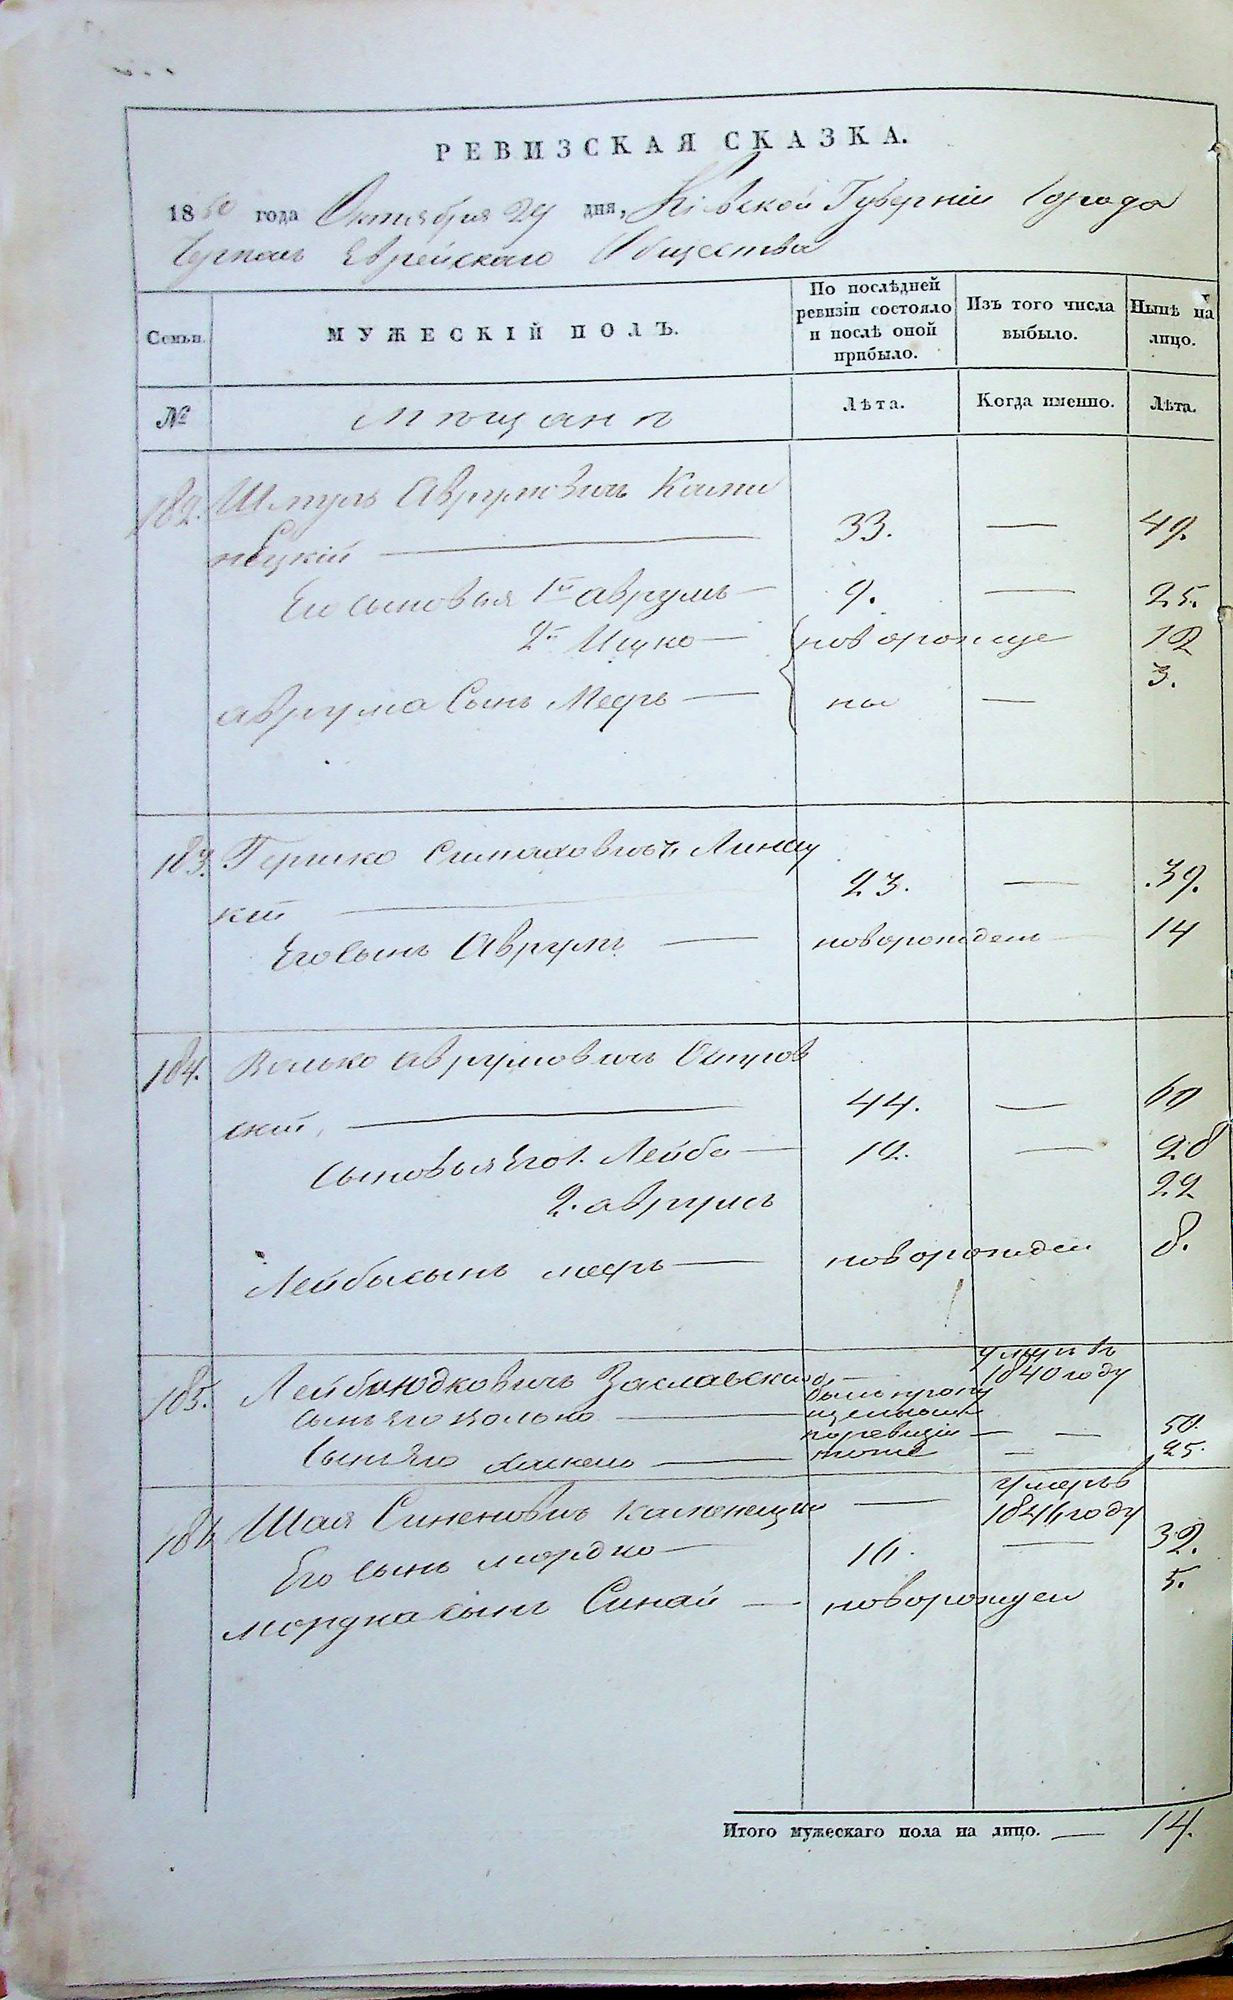 РЕВИЗСКАЯ СКАЗКА.
1850 года Октября 29 дня, Кіевской Губерніи Города
Еврейскаго Общества
Семьи.
МУЖЕСКІЙ ПОЛЪ.
По послѣдней ревизіи состояло и послѣ оной прибыло.
Изъ того числа выбыло.
Нынѣ на лицо.
№
Мѣщане
Лѣта.
Когда именно.
Лѣта.
182. Шмуль Аврумовичъ Камѣ
нецкій — 33. — 49.
Его сыновья 1й Аврумъ — 9. — 25.
2й Ицко — новорожде 12
Аврума Сынъ Мееръ — ны — 3.
183. Гершко Симаховичъ Линец
кій — 23. — 39.
Его сынъ Аврумъ — новорожденъ — 14
184. Волько Аврумовичъ Остров
скій, — 44. — 60
Сыновья его 1. Лейба — 12. — 28
2. Аврумъ 22
Лейбы сынъ Мееръ — новорожден 8.
185. Лейба Юдковичъ Заславскій — умеръ въ 1840 году
Сынъ его Волько — былъ пропу
щенным
по ревизіи — — 50.
Сынъ его Хаскель — тоже — 25.
186. Шая Синеновичъ Каменецкій — умеръ в
1846 году
Его Сынъ Мордко — 16. — 32.
Мордка сынъ Синай — новорожден 5.
Итого мужескаго пола на лицо. — 14.